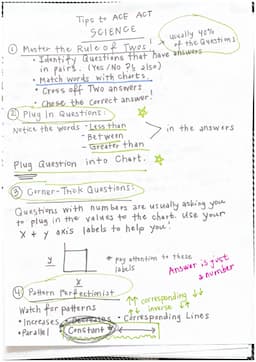 Tips to ACE ACT
SCIENCE
usually 40%
of the Questions
① Master the Rule of Twos!
• Identify Questions that have answers
in pairs. (Yes/No ?s also)
• Match words with charts.
• Cross off Two answers
• Chose the correct answer!
② Plug In Questions:
Notice the words - Less than
- Between
- Greater than
in the answers
Plug Question into Chart.
③ Corner-Thick Questions:
Questions with numbers are usually asking you
to plug in the values to the chart. Use your
X + y axis labels to help you!
y
X
* pay attention to these
labels
Answer is just
a number
④ Pattern Perfectionist
Watch for patterns
↑↑ corresponding ↓↓
↑↓ inverse ↓↑
• Increases • Decreases • Corresponding Lines
• Parallel Constant